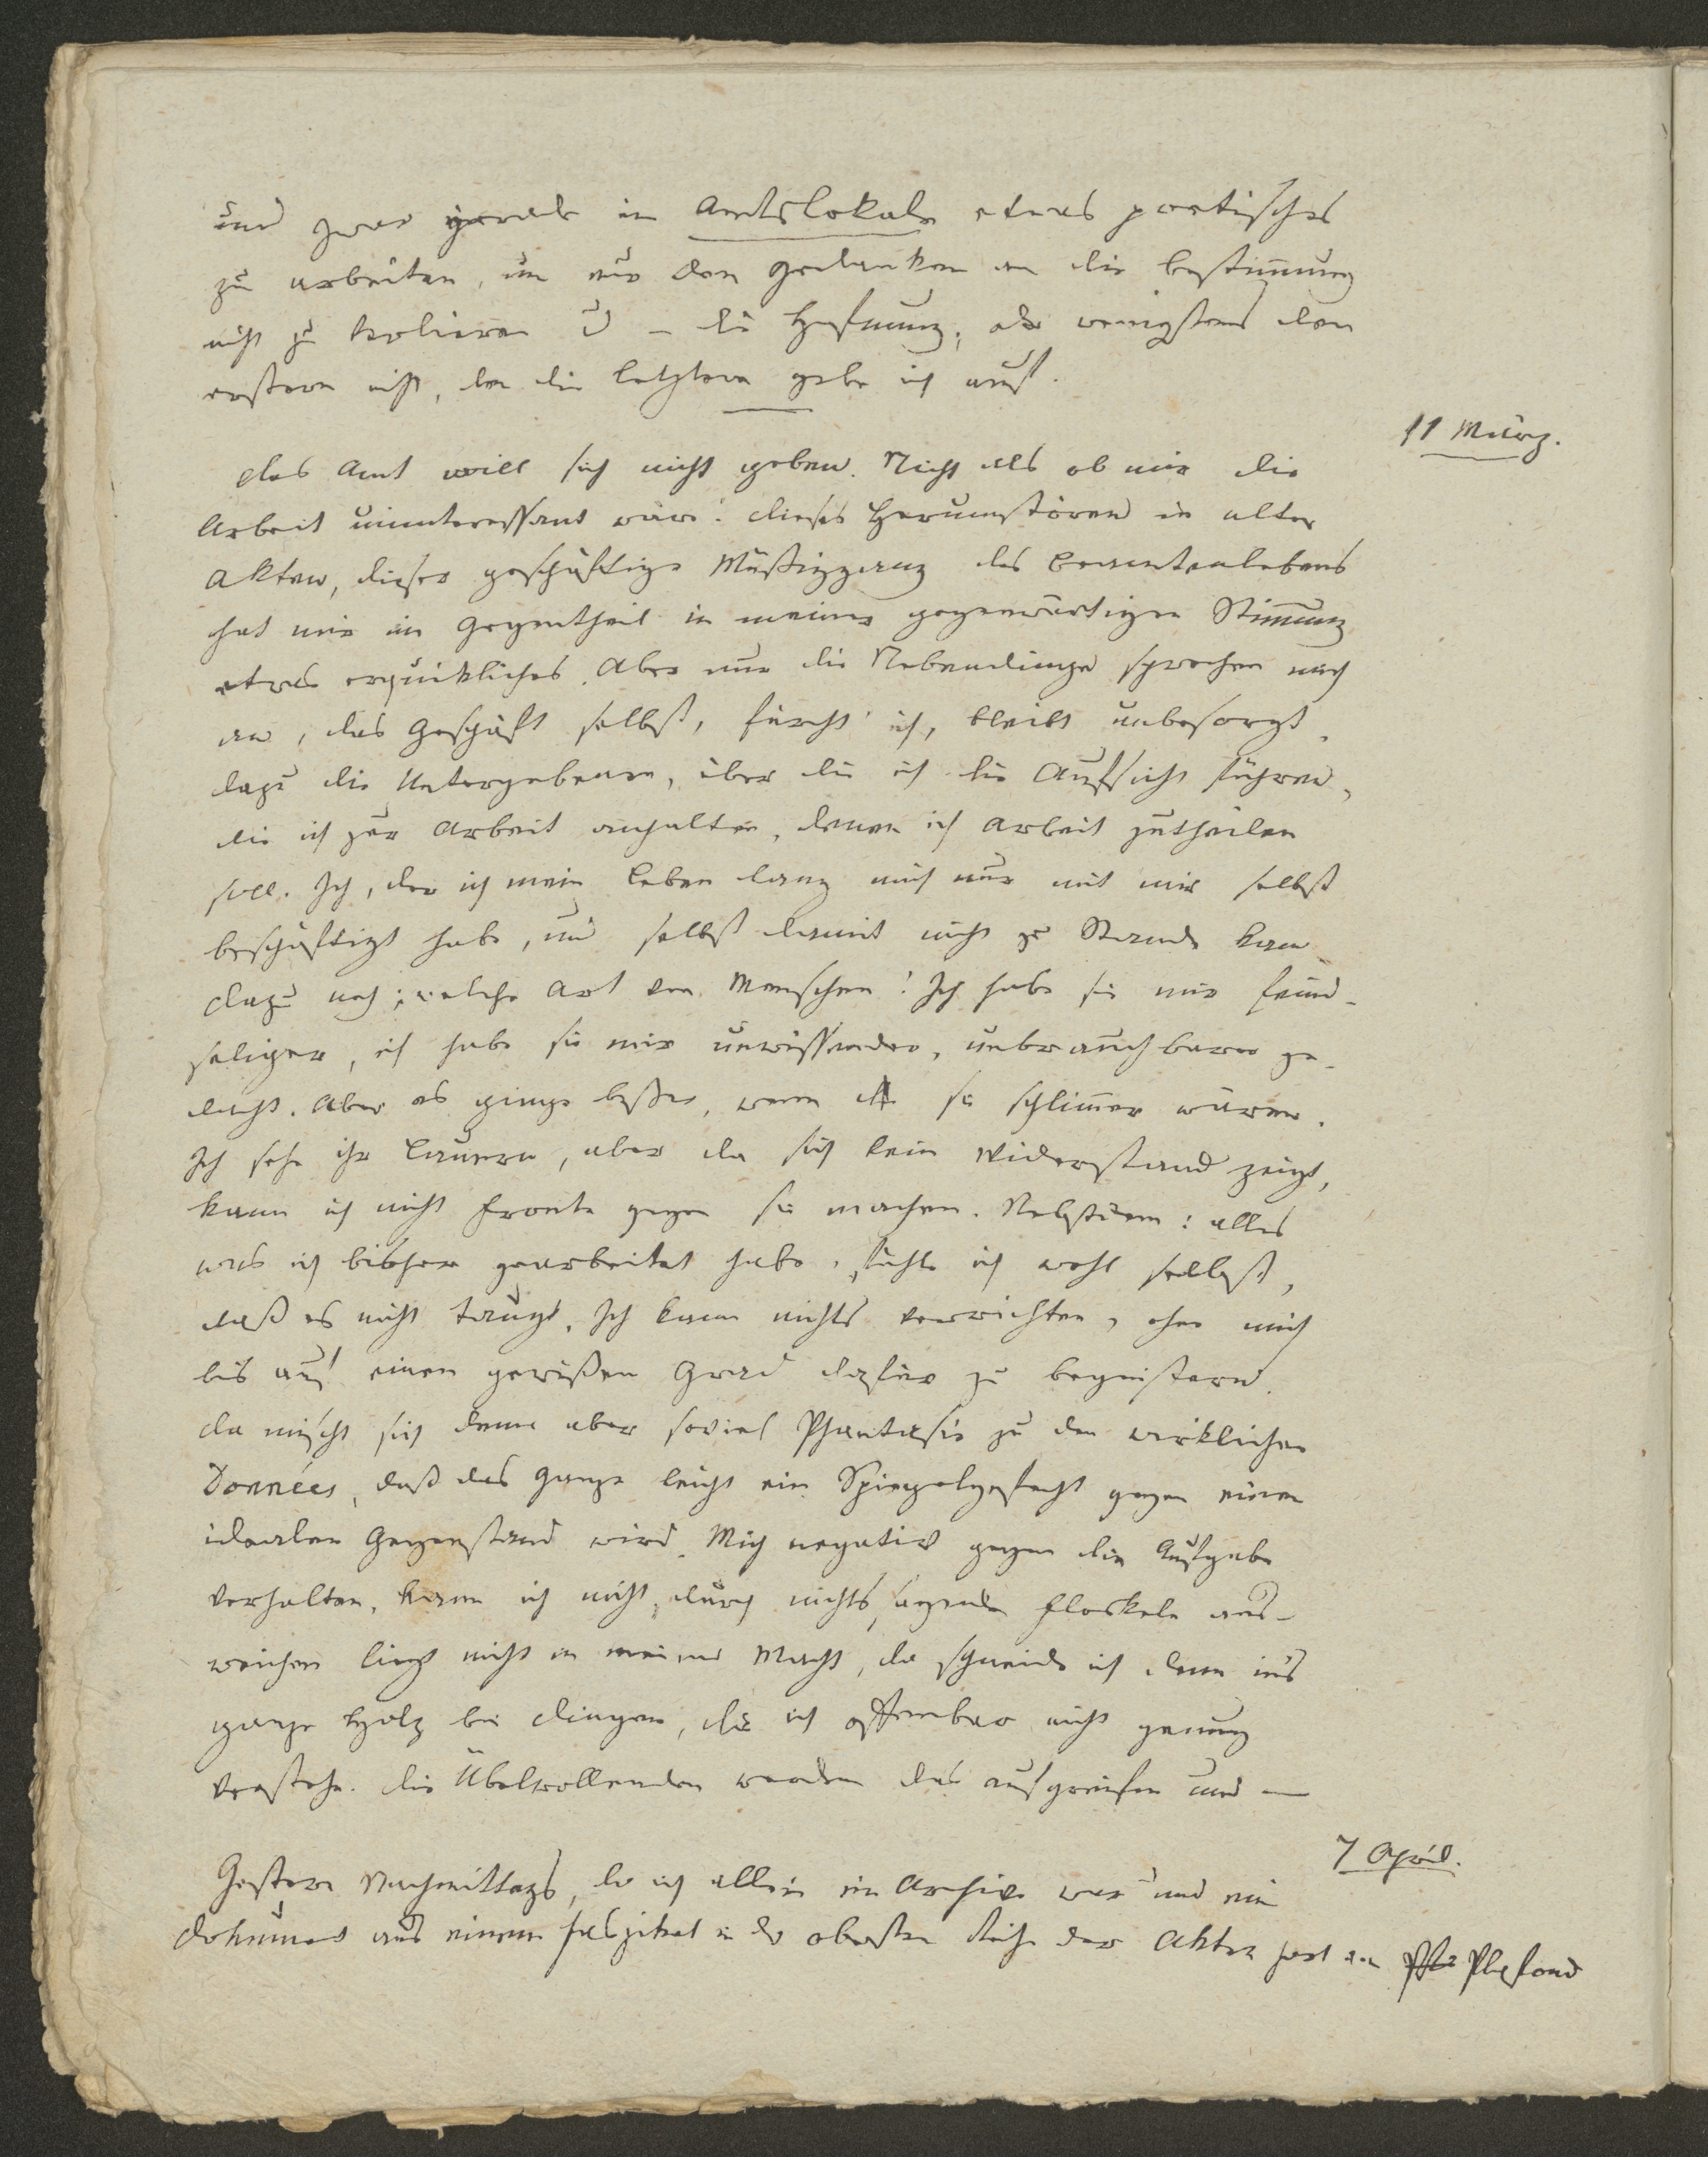 und zwar gerade im Amtslokale etwas poetisches
zu arbeiten, um nur den Gedanken an die Bestimmung
nicht zu verlieren u – die Hofnung, oder wenigstens den
erstern nicht, denn die letztere gebe ich auf.
11 März.
Das Amt will sich nicht geben. Nicht als ob mir die
Arbeit uninteressant wäre. Dieses Herumstören in alten
Akten, dieser geschäftige Müßiggang des Beamtenlebens
hat mir im Gegentheil in meiner gegenwärtigen Stimmung
etwas erquickliches. Aber nur die Nebendinge sprechen mich
an, das Geschäft selbst, fürcht' ich, bleibt unbesorgt.
Dazu die Untergebenen, über die ich die Aufsicht führen,
die ich zur Arbeit anhalten, denen ich Arbeit zutheilen
soll. Ich, der ich mein Leben lang mich nur mit mir selbst
beschäftigt habe, und selbst damit nicht zu Stande kam.
Dazu noch: welche Art von Menschen! Ich habe sie mir feind-
seliger, ich habe sie mir unwissender, unbrauchbarer ge-
dacht. Aber es ginge beßer, wenn sie schlimmer wären.
Ich sehe ihr Lauern, aber da sich kein Widerstand zeigt,
kann ich nicht Fronte gegen sie machen. Nebstdem: alles
was ich bisher gearbeitet habe, fühle ich wohl selbst,
daß es nicht taugt. Ich kann nichts verrichten, ohne mich
bis auf einen gewißen Grad dafür zu begeistern.
Da mischt sich denn aber soviel Phantasie zu den wirklichen
Données, daß das Ganze leicht ein Spiegelgefecht gegen einen
idealen Gegenstand wird. Mich negativ gegen die Aufgabe
verhalten, kann ich nicht, durch nichtssagende Floskeln aus-
weichen liegt nicht in meiner Macht, da schneide ich denn ins
ganze Holz bei Dingen, die ich offenbar nicht genug
verstehe. Die Übelwollenden werden das aufgreifen und —
7 April.
Gestern Nachmittags, da ich allein im Archive war und ein
Dokument aus einem Faszikel in der obersten Reihe der Akten fast am Plafond